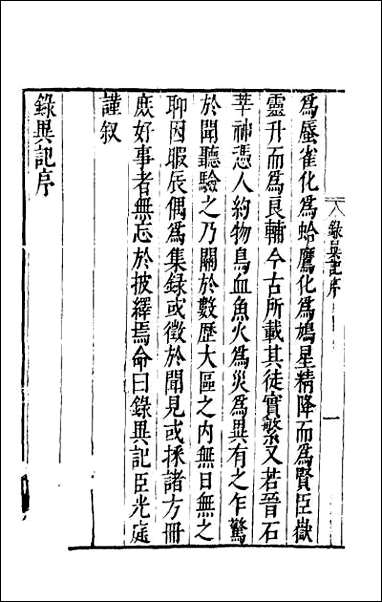 錄異記序
一
為蜃雀化為蛤鷹化為鳩星精降而為賢臣嶽
靈升而為良輔今古所載其徒實繁又若晉石
莘神憑人約物鳥血魚火為災為異有之乍驚
於聞聽驗之乃關於數歷大區之内無日無之
聊因暇辰偶為集録或徵於聞見或採諸方冊
庶好事者無忘於披繹焉命曰錄異記臣光庭
謹叙
錄異記序